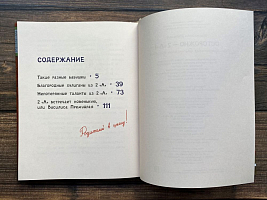 СОДЕРЖАНИЕ
Такие разные бабушки • 5
Благородные хулиганы из 2 «А» • 39
Многогранные таланты из 2 «А» • 73
2 «А» встречает новенькую,
или Василиса Прекрасная • 111
Родителей в школу!